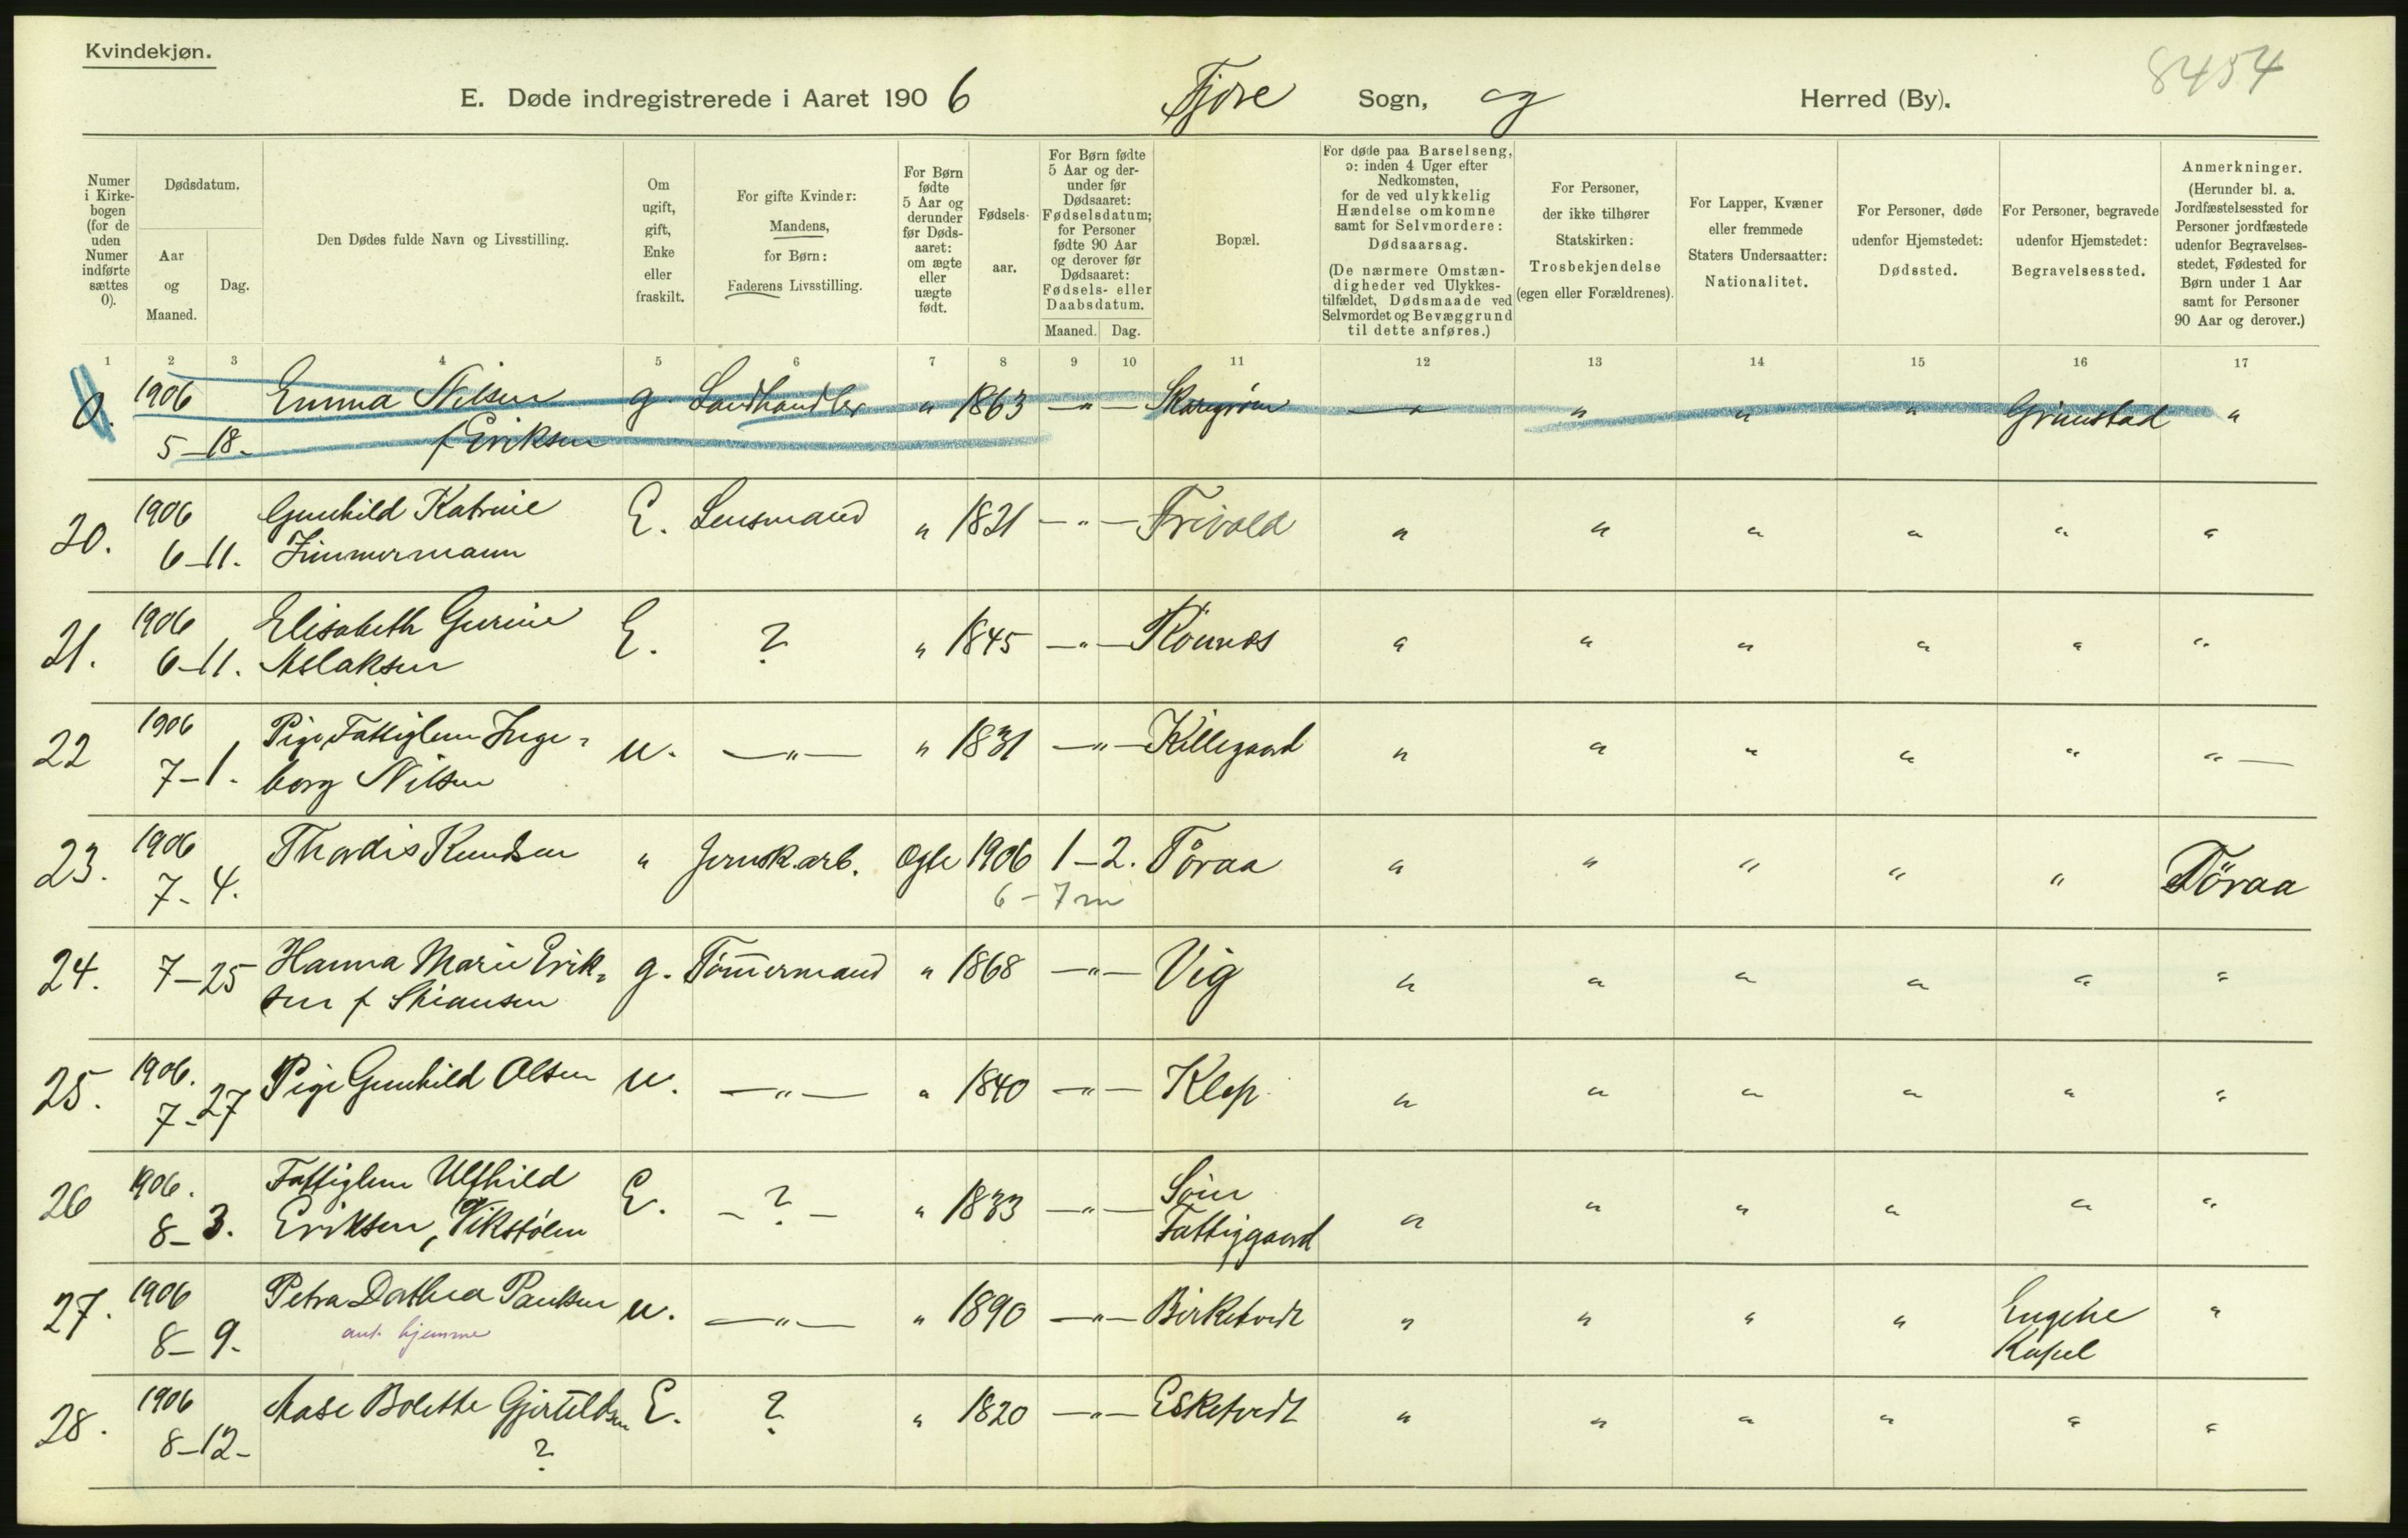 Kvindekjøn.
8454
E. Døde indregistrerede i Aaret 1906 Fjære Sogn, og Herred (By).
Numer i Kirkebogen (for de uden Numer indførte sættes 0).
Dødsdatum.
Aar og Maaned.
Dag.
Den Dødes fulde Navn og Livsstilling.
Om ugift, gift, Enke eller fraskilt.
For gifte Kvinder: Mandens, for Børn: Faderens Livsstilling.
For Børn fødte 5 Aar og derunder før Dødsaaret: om ægte eller uægte født.
Fødselsaar.
For Børn fødte 5 Aar og derunder før Dødsaaret: Fødselsdatum; for Personer fødte 90 Aar og derover før Dødsaaret: Fødsels- eller Daabsdatum.
Maaned. Dag.
Bopæl.
For døde paa Barselseng, ɔ: inden 4 Uger efter Nedkomsten, for de ved ulykkelig Hændelse omkomne samt for Selvmordere: Dødsaarsag.
(De nærmere Omstændigheder ved Ulykkestilfældet, Dødsmaade ved Selvmordet og Bevæggrund til dette anføres.)
For Personer, der ikke tilhører Statskirken: Trosbekjendelse (egen eller Forældrenes).
For Lapper, Kvæner eller fremmede Staters Undersaatter: Nationalitet.
For Personer, døde udenfor Hjemstedet: Dødssted.
For Personer, begravede udenfor Hjemstedet: Begravelsessted.
Anmerkninger. (Herunder bl. a. Jordfæstelsessted for Personer jordfæstede udenfor Begravelsesstedet, Fødested for Børn under 1 Aar samt for Personer 90 Aar og derover.)
1 2 3 4 5 6 7 8 9 10 11 12 13 14 15 16 17
0. 1906 Emma Nilsen g. Landhandler " 1863 —"— " " " Grimstad "
5-18. f Eriksen
20. 1906 Gunhild Katrine E. Lensmand " 1821 —"— Frivold " " " " " "
6-11. Zimmermann
21. 1906 Elisabeth Gurine E. ? " 1845 —"— Rønnes " " " " " "
6-11. Aslaksen
22 1906 Pige Fattiglem Inge= u. —"— " 1831 —"— Killegaard " " " " " "—
7-1. borg Nilsen
23. 1906 Thordis Knudsen " Jernsk.arb. Ægte 1906 1-2. Tøraa " " " " " Tøraa
7-4. 6-7m
24. 7-25 Hanna Marie Erik= g. Tømmermand " 1868 —"— Vig " " " " " "
sen f Stiansen
25. 1906. Pige Gunhild Olsen u. —"— " 1840 —"— Klep " " " " " "
7-27
26 1906. Fattiglem Ulfhild E. -?- " 1833 —"— Søm " " " " " "
8-3. Eriksen, Vikstølen Fattiggaard
27. 1906 Petra Dorthea Paulsen u. —"— " 1890 —"— Birketvedt " " " " Engene "
8-9. ant. hjemme Kapel
28. 1906 Aase Bolette Gjeruldsen E. ? " 1820 —"— Esketvedt " " " " " "
8-12- ?